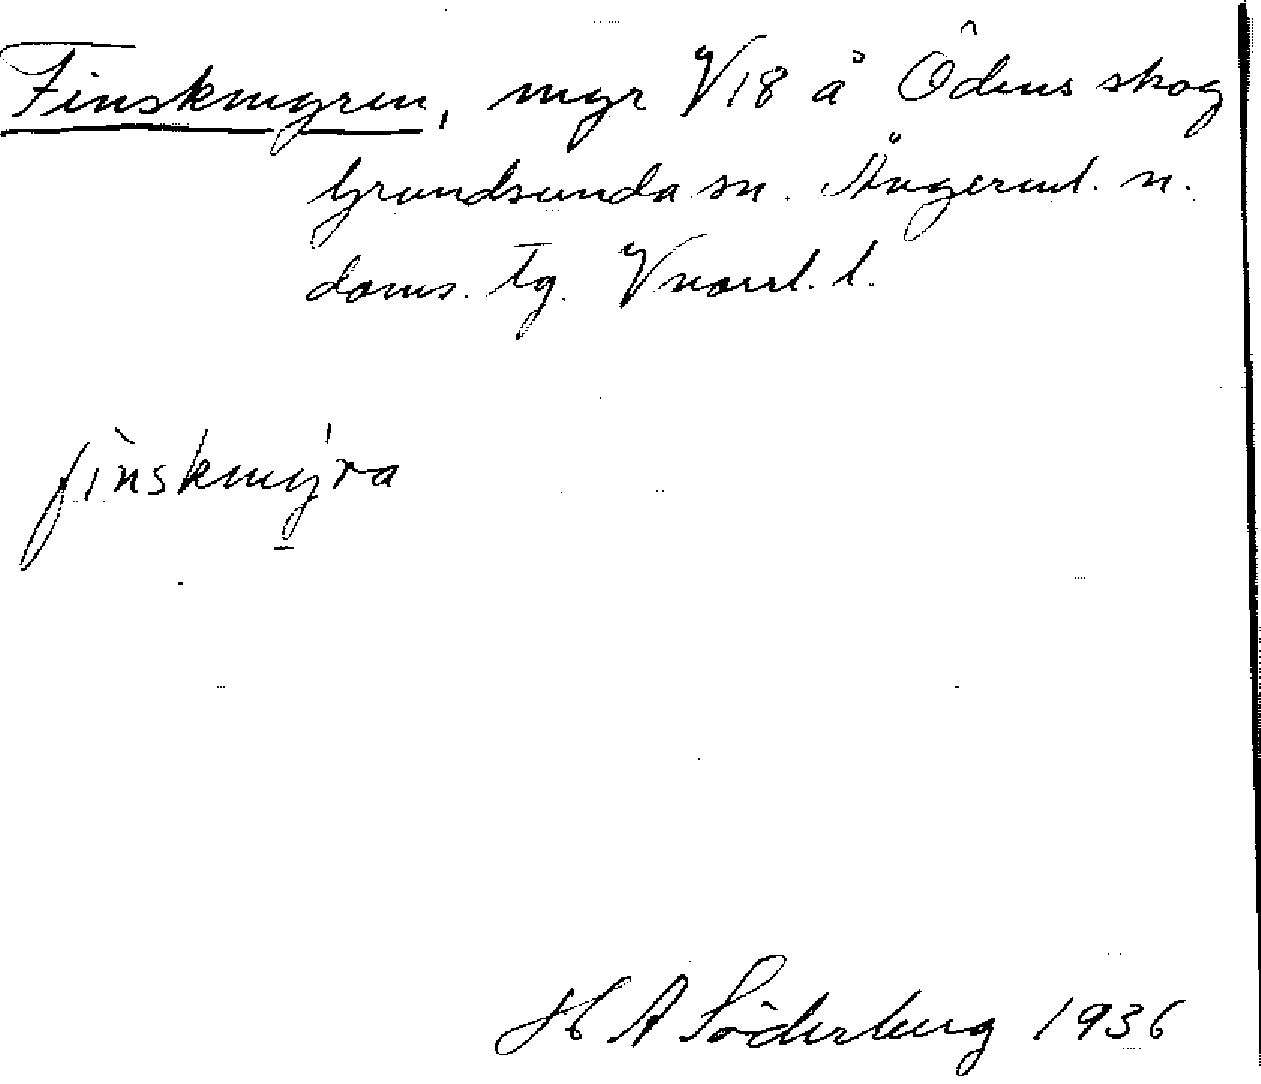 Finskmyren, myr V18 å Ödens skog
Grundsunda sn. Ångerml. n.
doms. tg. Vnorrl. l.
fìnskmy̠ˈra
H A Söderberg 1936